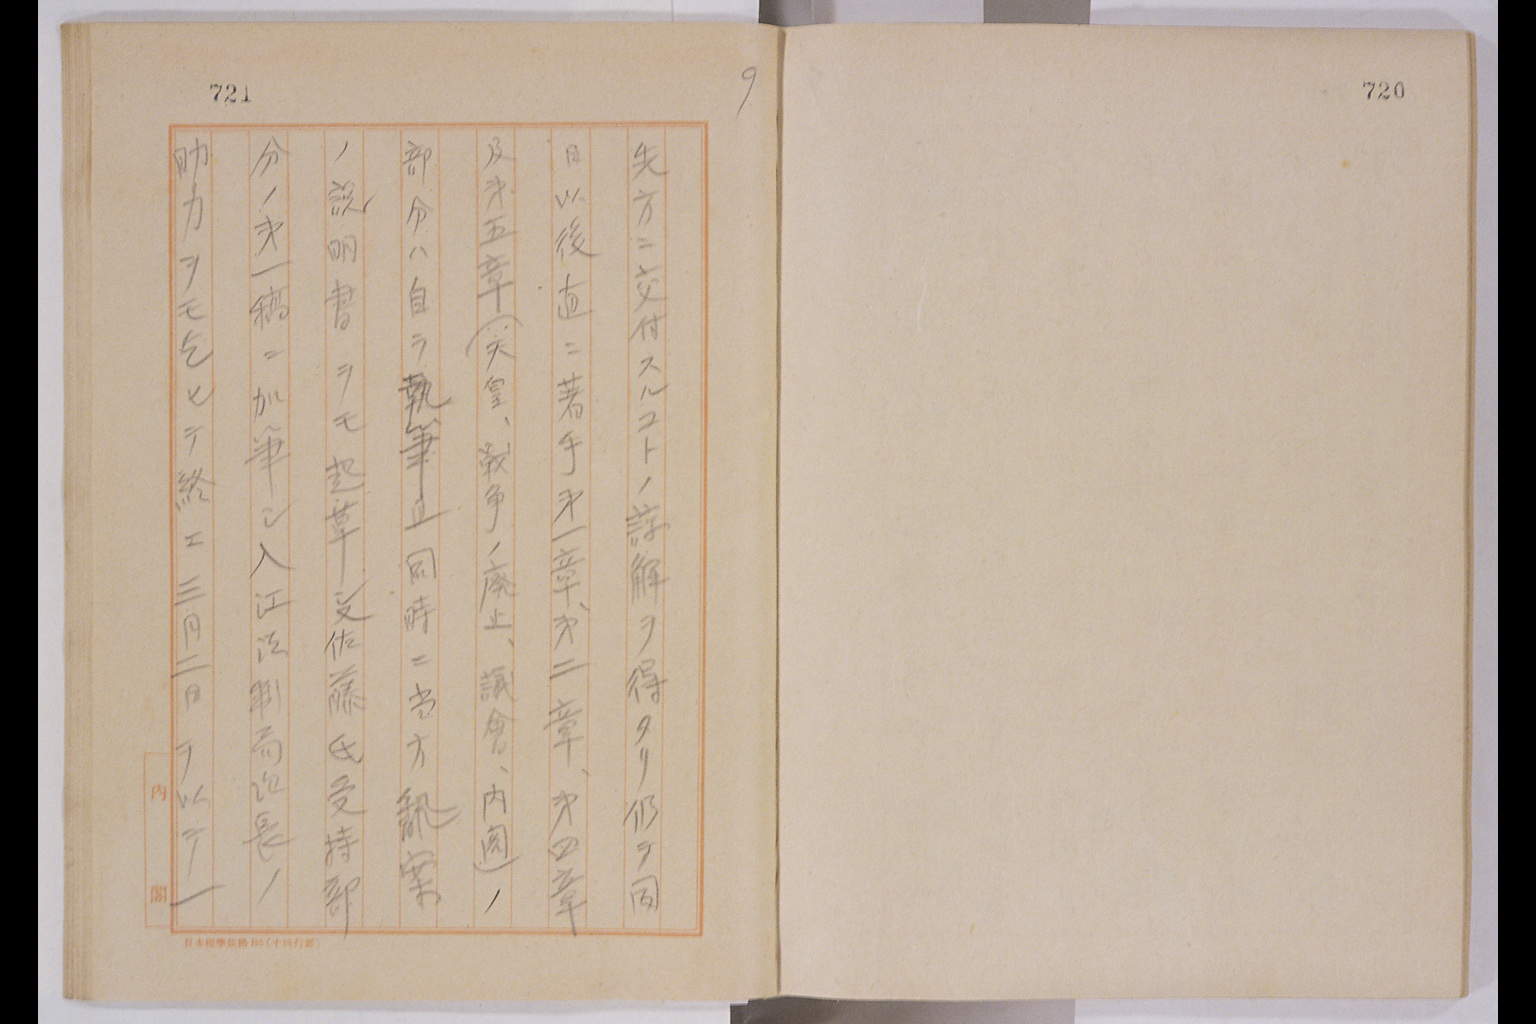 720
721
9
先方ニ交付スルコトノ諒解ヲ得タリ仍テ同
日以後直ニ著手才一章、才二章、才四章
及才五章(天皇、戦争ノ廃止、議會、内閣)ノ
部分ハ自ラ執筆シ同時ニ当方試案
ノ説明書ヲモ起草シ佐藤氏受持部
分ノ才一稿ニ加筆シ入江法制局次長ノ
助力ヲモ乞ヒテ終ニ三月二日ヲ以テ一
内閣
日本標準規格